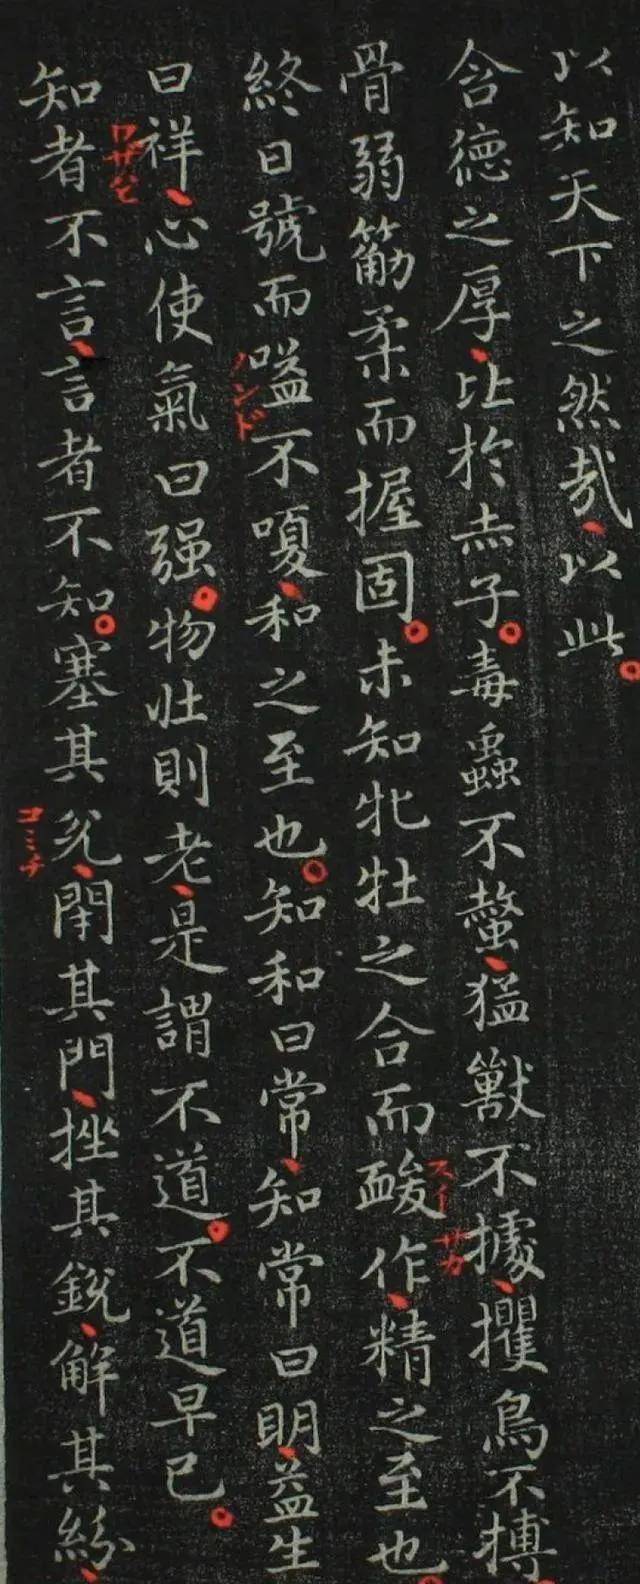 以知天下之然哉、以此。
含德之厚、比於赤子。毒蟲不螫、猛獸不據、攫鳥不搏
スイ
サカ
骨弱筋柔而握固。未知牝牡之合而作、精之至也。
終日號而嗌不嗄、和之至也。知和曰常、知常曰明、益生
ノンド
曰祥、心使氣曰强。物壯則老、是謂不道。不道早已。
知者不言、言者不知。塞其兊、閇其門、挫其銳、解其紛、
コミチ